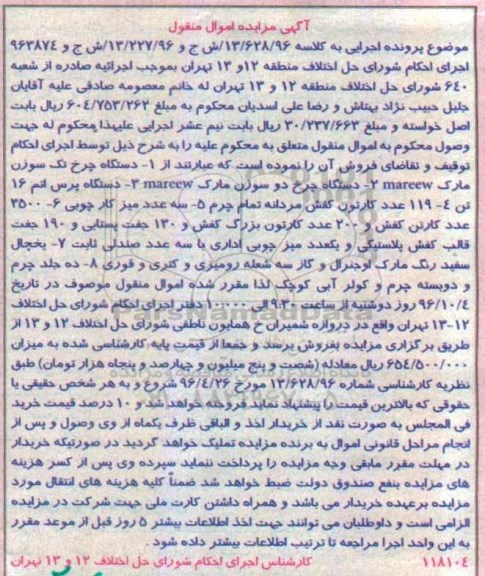 آگهی مزایده اموال منقول
موضوع پرونده اجرایی به کلاسه ۱۳/۶۲۸/۹۶/ش ج و ۱۳/۲۲۷/۹۶/ش ج و ۹۶۳۸۷۴
اجرای احکام شورای حل اختلاف منطقه ۱۲و ۱۳ تهران بموجب اجرائیه صادره از شعبه
۶۴۰ شورای حل اختلاف منطقه ۱۲ و ۱۳ تهران له خانم معصومه صادقی علیه آقایان
جلیل حبیب نژاد بهتاش و رضا علی اسدیان محکوم به مبلغ ۶۰۴/۷۵۳/۲۶۲ ریال بابت
اصل خواسته و مبلغ ۳۰/۲۳۷/۶۶۳ ریال بابت نیم عشر اجرایی علیهذا محکوم له جهت
وصول محکوم به اموال منقول متعلق به محکوم علیه را به شرح ذیل توسط اجرای احکام
توقیف و تقاضای فروش آن را نموده است که عبارتند از ۱- دستگاه چرخ تک سوزن
مارک mareew ۲- دستگاه چرخ دو سوزن مارک mareew ۳- دستگاه پرس اتم ۱۶
تن ۴- ۱۱۹ عدد کارتون کفش مردانه تمام چرم ۵- سه عدد میز کار چوبی ۶- ۳۵۰۰
عدد کارتن کفش و ۲۰۰ عدد کارتون بزرگ کفش و ۱۳۰ جفت پستایی و ۱۹۰ جفت
قالب کفش پلاستیکی و یکعدد میز چوبی اداری با سه عدد صندلی ثابت ۷- یخچال
سفید رنگ مارک اوجنرال و گاز سه شعله رومیزی و کتری و قوری ۸- ده جلد چرم
و دوبسته چرم و کولر آبی کوچک لذا مقرر شده اموال منقول موصوف در تاریخ
۹۶/۱۰/۴ روز دوشنبه از ساعت ۹:۳۰ الی ۱۰:۰۰ دفتر اجرای احکام شورای حل اختلاف
۱۲-۱۳ تهران واقع در دروازه شمیران خ همایون ناطقی شورای حل اختلاف ۱۲ و ۱۳ از
طریق برگزاری مزایده بفروش برسد و جمعا از قیمت پایه کارشناسی شده به میزان
۶۵۴/۵۰۰/۰۰۰ ریال معادله (شصت و پنج میلیون و چهارصد و پنجاه هزار تومان) طبق
نظریه کارشناسی شماره ۱۳/۶۲۸/۹۶ مورخ ۹۶/۴/۲۶ شروع و به هر شخص حقیقی یا
حقوقی که بالاترین قیمت را پیشنهاد نماید فروخته خواهد شد و ۱۰ درصد قیمت خرید
فی المجلس به صورت نقد از خریدار اخذ و الباقی ظرف یکماه از وی وصول و پس از
انجام مراحل قانونی اموال به برنده مزایده تملیک خواهد گردید در صورتیکه خریدار
در مهلت مقرر مابقی وجه مزایده را پرداخت ننماید سپرده وی پس از کسر هزینه
های مزایده بنفع صندوق دولت ضبط خواهد شد ضمناً کلیه هزینه های انتقال مورد
مزایده برعهده خریدار می باشد و همراه داشتن کارت ملی جهت شرکت در مزایده
الزامی است و داوطلبان می توانند جهت اخذ اطلاعات بیشتر ۵ روز قبل از موعد مقرر
به این واحد اجرا مراجعه تا ترتیب اطلاعات بیشتر داده شود.
۱۱۸۱۰۴ کارشناس اجرای احکام شورای حل اختلاف ۱۲ و ۱۳ تهران